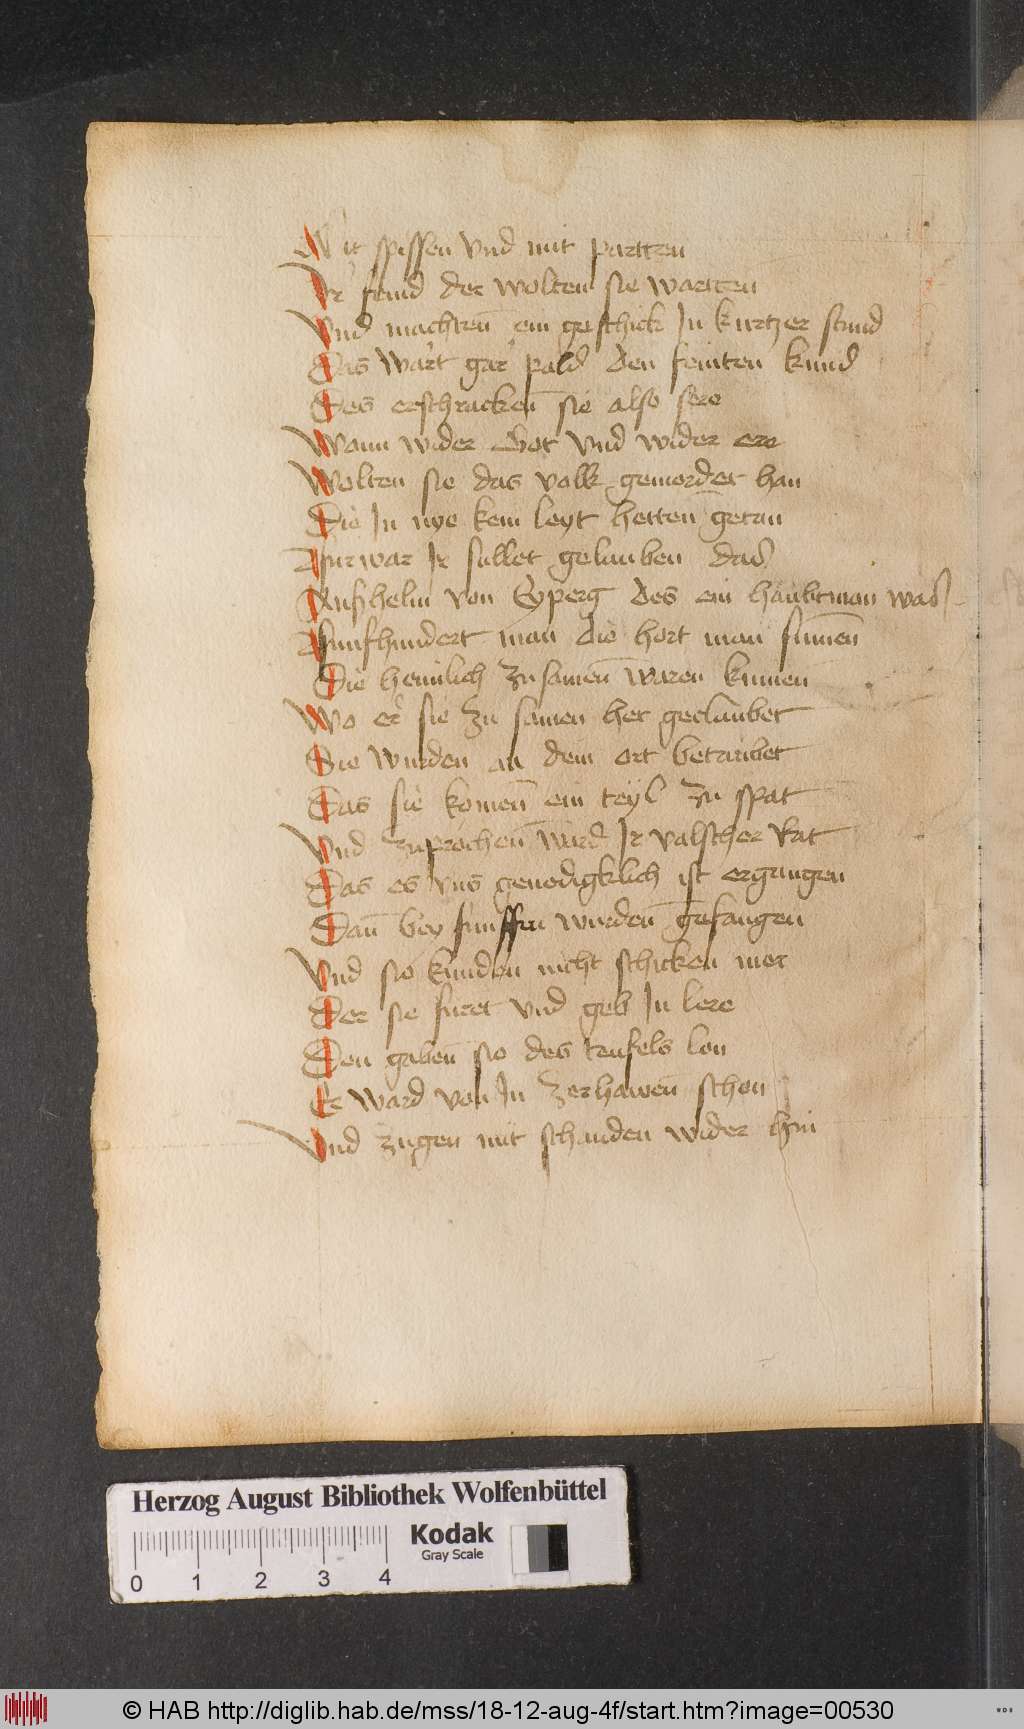 Mit spissen vnd mit partten
Ir feind der wolten sie wartten
Vnd machten ein geschick In kurtzer stund
Das wart gar pald den feinten kund
Des erschracken sie also sere
Wann wider Got vnd wider ere
Wolten sie das volk gemordet han
Die In nye kein leyt hetten getan
Furwar Ir sullet gelauben das
Anßhelm von Eyperg des ein haubtman was
Funfhundert man die hort man sumen
Die heimlich zu samen waren kumen
Wo er sie zu samen het geclaubet
Sie wurden an dem ort betaubet
Das sie komen ein teyl zu spat
Vnd zuprochen ward Ir valscher Rat
Das es vns genedigklich ist ergangen
Dan bey funffen wurden gefangen
Vnd sie kunden nicht schicken mer
Der sie furet vnd geb In lere
Den gaben sie des teufels lon
Er ward von In zerhawen schon
Vnd zugen mit schanden wider hin
Herzog August Bibliothek Wolfenbüttel
Kodak
Gray Scale
0 1 2 3 4
© HAB http://diglib.hab.de/mss/18-12-aug-4f/start.htm?image=00530